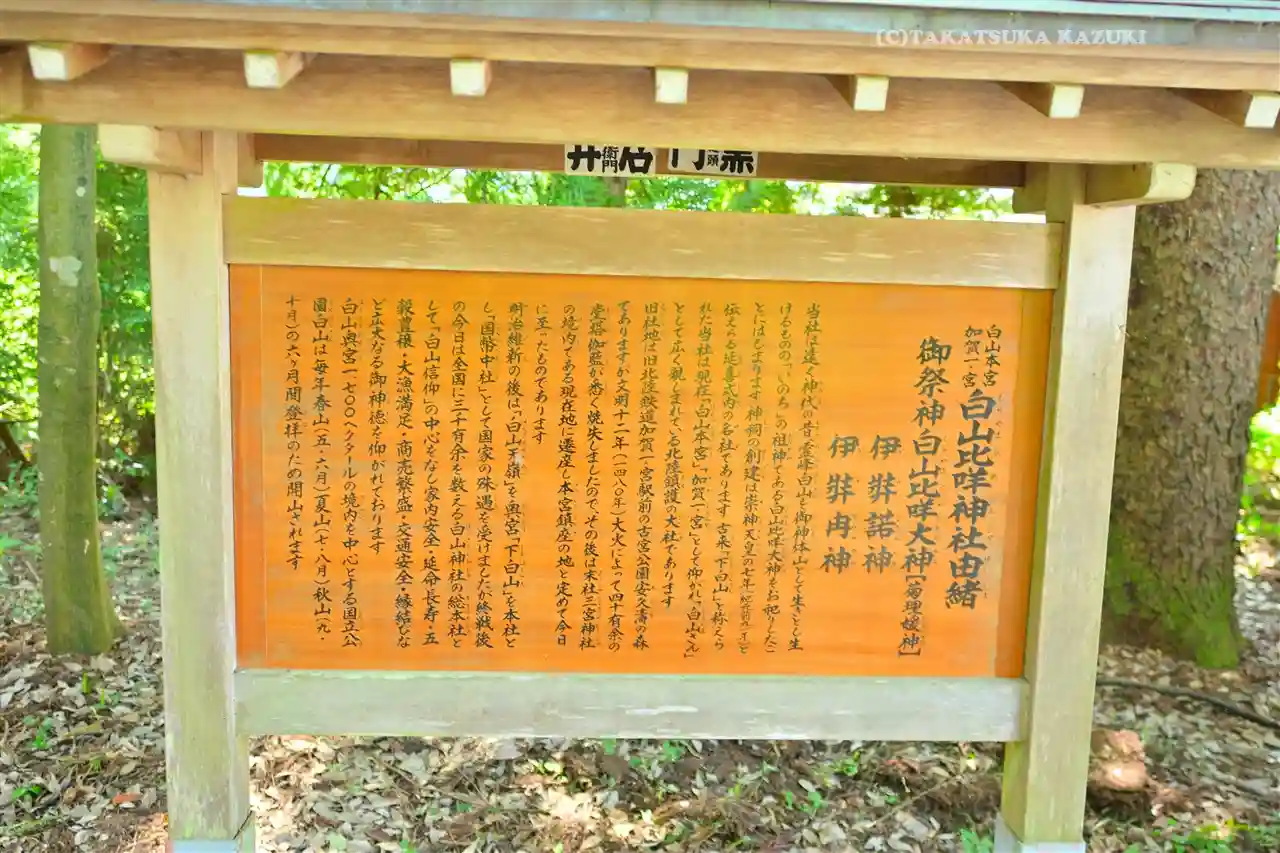 (C)TAKATSUKA KAZUKI
白山本宮
加賀一ノ宮
白山比咩神社由緒
御祭神白山比咩大神[菊理媛神]
伊弉諾神
伊弉冉神
当社は遠く神代の昔霊峰白山を御神体として生きとし生
けるものの「いのち」の祖神である白山比咩大神をお祀りしたこ
とにはじまります 神祠の創建は崇神天皇の七年
伝えらる延喜式内の名社であります 古来「下白山」と称へら
れた当社は現在「白山本宮」「加賀一ノ宮」として仰がれ「白山さん」
として広く親しまれている北陸鎮護の大社であります
旧社地は旧北陸鉄道加賀一ノ宮駅前の古宮公園安久濤の森
でありますが文明十二年(一四八〇年)大火によって四十有余の
堂塔伽藍が悉く焼失しましたので、その後は末社三宮神社
の境内である現在地に遷座し本宮鎮座の地と定めて今日
に至ったものであります
明治維新の後は、「白山天嶺」を奥宮「下白山」を本社と
し「国幣中社」として国家の殊遇を受けましたが終戦後
の今日は全国に三千有余を数える白山神社の総本社と
して「白山信仰」の中心をなし家内安全・延命長寿・五
穀豊穣・大漁満足・商売繁盛・交通安全・縁結びな
ど広大なる御神徳を仰がれております
白山奥宮一七〇〇ヘクタールの境内を中心とする国立公
園白山は毎年春山(五・六月)夏山(七・八月)秋山(九・
十月)の六ヶ月間登拝のため開山されます